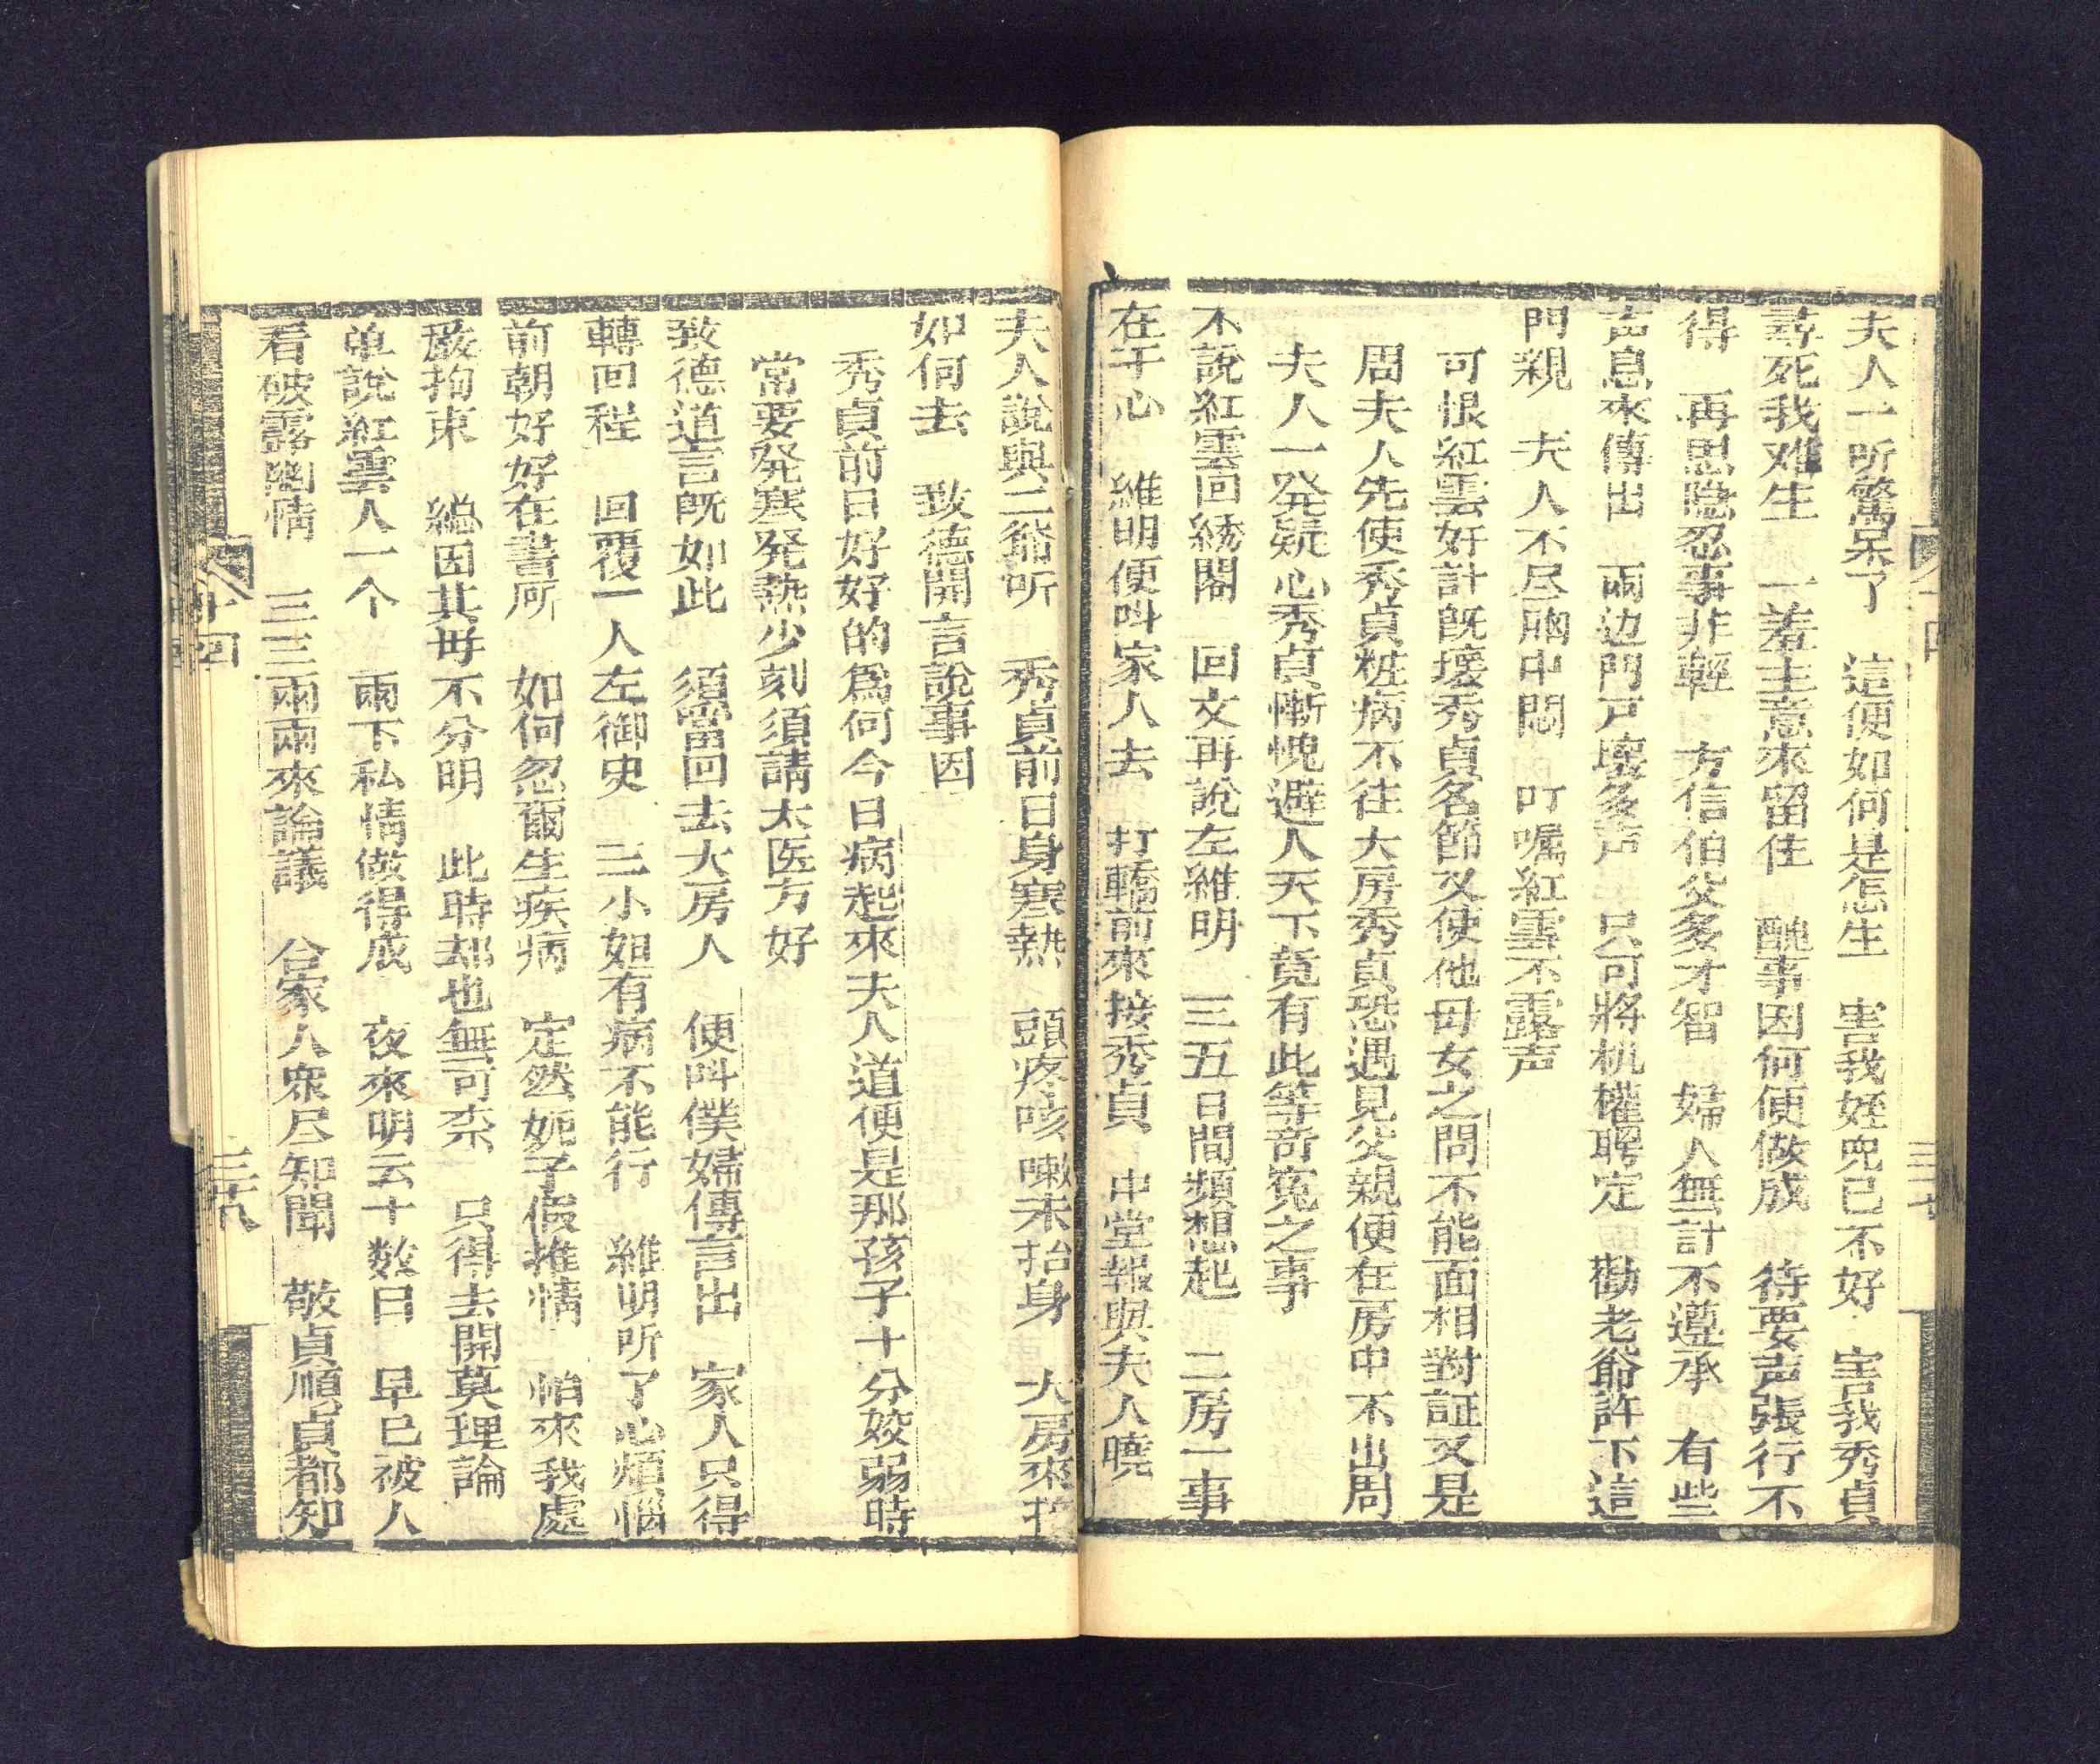 夫人一听驚呆了　這便如何是怎生　害我姪兒已不好　害我秀貞
尋死我难生　一羞主意來留住　醜事因何便做成　待要声張行不
得　再思隐忍事非輕　方信伯父多才智　婦人無計不遵承　有些
声息來傳出　兩边門戸壞多声　只可將机權聘定　勸老爺許下這
門親　夫人不尽胸中悶　叮嘱紅雲不露声
可恨紅雲奸計既壞秀貞名節又使他母女之間不能面相對証又是
周夫人先使秀貞粧病不往大房秀貞恐遇見父親便在房中不出周
夫人一発疑心秀貞慚愧避人天下竟有此等奇寃之事
不說紅雲回綉閣　回文再說左維明　三五日間頻想起　二房一事
在于心　維明便呌家人去　打轎前來接秀貞　中堂報與夫人曉
夫人說與二爺听　秀貞前日身寒熱　頭疼咳嗽未抬身　大房來接
如何去　致德開言說事因
秀貞前日好好的爲何今日病起來夫人道便是那孩子十分姣弱時
常要発寒発熱少刻須請太医方好
致德道言既如此　須當回去大房人　便呌僕婦傳言出　家人只得
轉回程　回覆一人左御史　二小姐有病不能行　維明听了心煩惱
前朝好好在書所　如何忽爾生疾病　定然妮子假推情　怕來我處
嚴拘束　縂因其母不分明　此時却也無可柰　只得去開莫理論
单說紅雲人一个　兩下私情做得成　夜來明云十数日　早已被人
看破露幽情　三三兩兩來論議　合家人衆尽知聞　敬貞順貞都知
十四
三七
十四
三十八